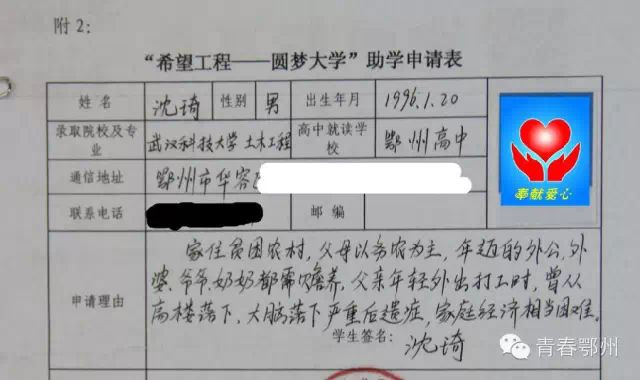 附2：
“希望工程——圆梦大学”助学申请表
姓名 沈琦 性别 男 出生年月 1996.1.20
录取院校及专业 武汉科技大学 土木工程 高中就读学校 鄂州高中
通信地址 鄂州市华容
联系电话 邮编
奉献爱心
申请理由
家住贫困农村，父母以务农为主，年迈的外公，外
婆、爷爷奶奶都需赡养，父亲年轻外出打工时，曾从
高楼落下，大脑落下严重后遗症，家庭经济相当困难。
学生签名：沈琦
青春鄂州